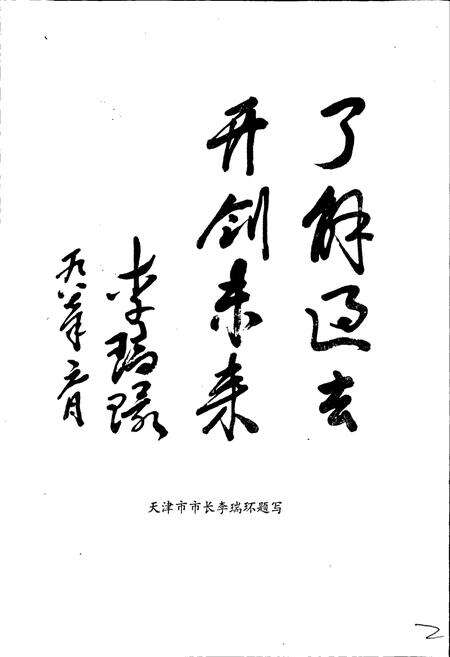 了解过去
开创未来
李瑞环
一九八七年二月
天津市市长李瑞环题写
2